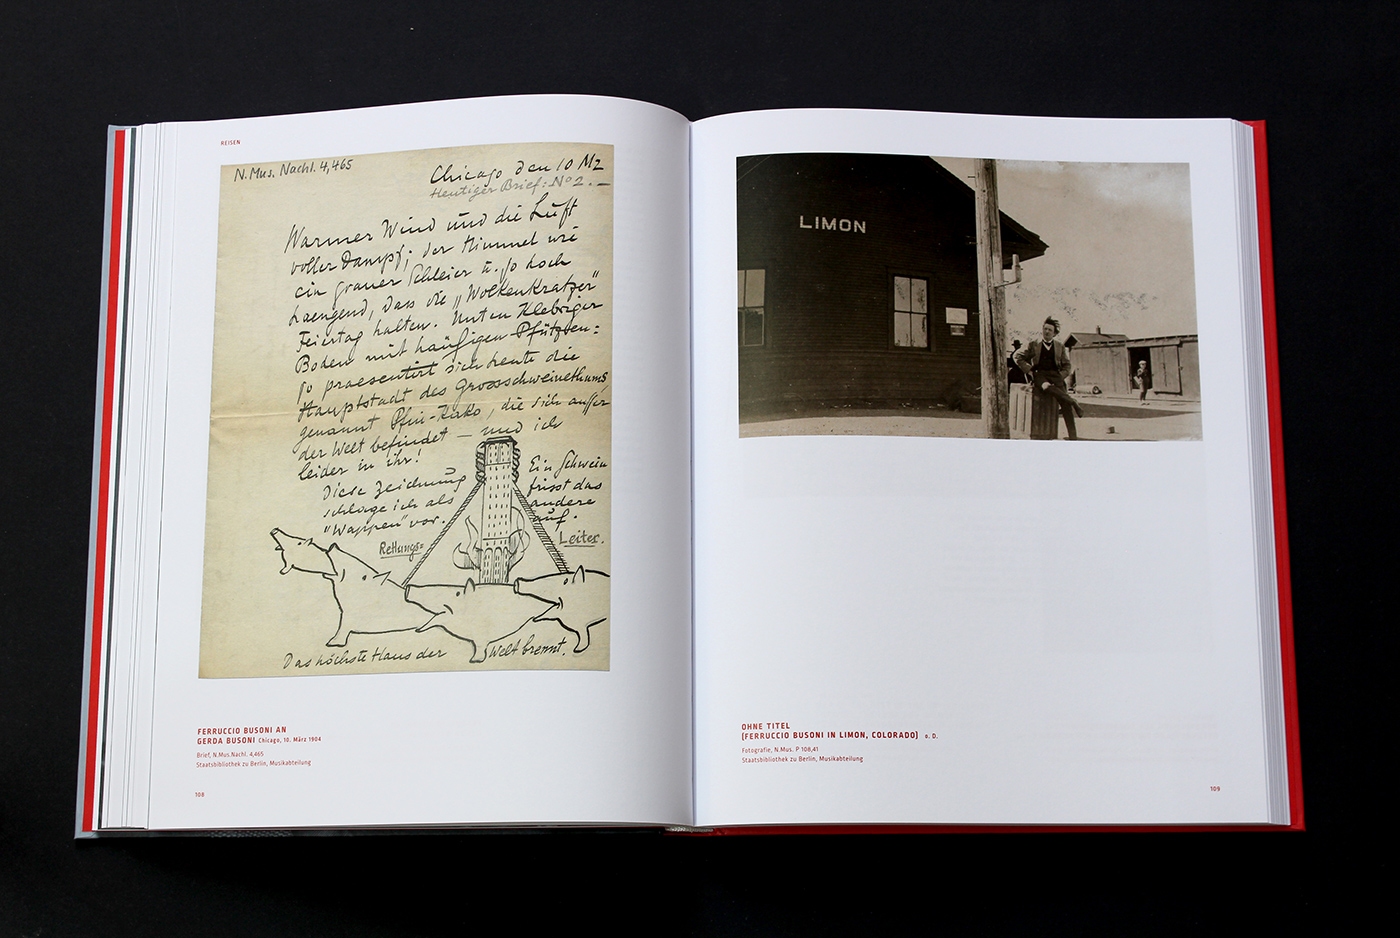 REISEN
N. Mus. Nachl. 4,465
Chicago den 10 Mz
Heutiger Brief: No 2. —
Warmer Wind und die Luft
voller Dampf; der Himmel wie
ein grauer Schleier u. so hoch
haengend, dass die „Wolkenkratzer"
Feiertag halten. Unten Klebriger
Boden mit häufigen Pfützen:
so praesentirt sich heute die
Hauptstadt des Grossschweinethums
genannt , die sich ausser
der Welt befindet — und ich
leider in ihr!
Diese Zeichnung
schlage ich als
"Wappen" vor.
Ein Schwein
frisst das
andere
auf.
Rettungs=
Leiter.
Das höchste Haus der Welt brennt.
FERRUCCIO BUSONI AN
GERDA BUSONI Chicago, 10. März 1904
Brief, N.Mus.Nachl. 4,465
Staatsbibliothek zu Berlin, Musikabteilung
108
LIMON
OHNE TITEL
[FERRUCCIO BUSONI IN LIMON, COLORADO] o. D.
Fotografie, N.Mus. P 108,41
Staatsbibliothek zu Berlin, Musikabteilung
109